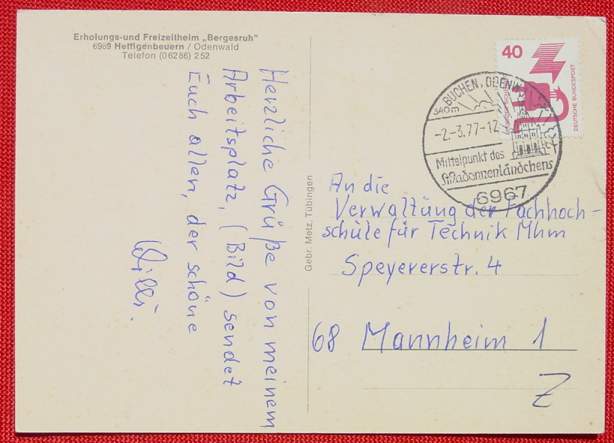 Erholungs-und Freizeitheim „Bergesruh"
6969 Hettigenbeuern / Odenwald
Telefon (06286) 252
Herzliche Grüße von meinem
Arbeitsplatz, (Bild) sendet
Euch allen, der schöne
Willi.
Gebr. Metz, Tübingen
40
DEUTSCHE BUNDESPOST
BUCHEN, ODENW
340m
-2.-3.77-12
Mittelpunkt des
Madonnenländchens
6967
An die
Verwaltung der Fachhoch-
schule für Technik Mhm
Speyererstr. 4
68 Mannheim 1
Z